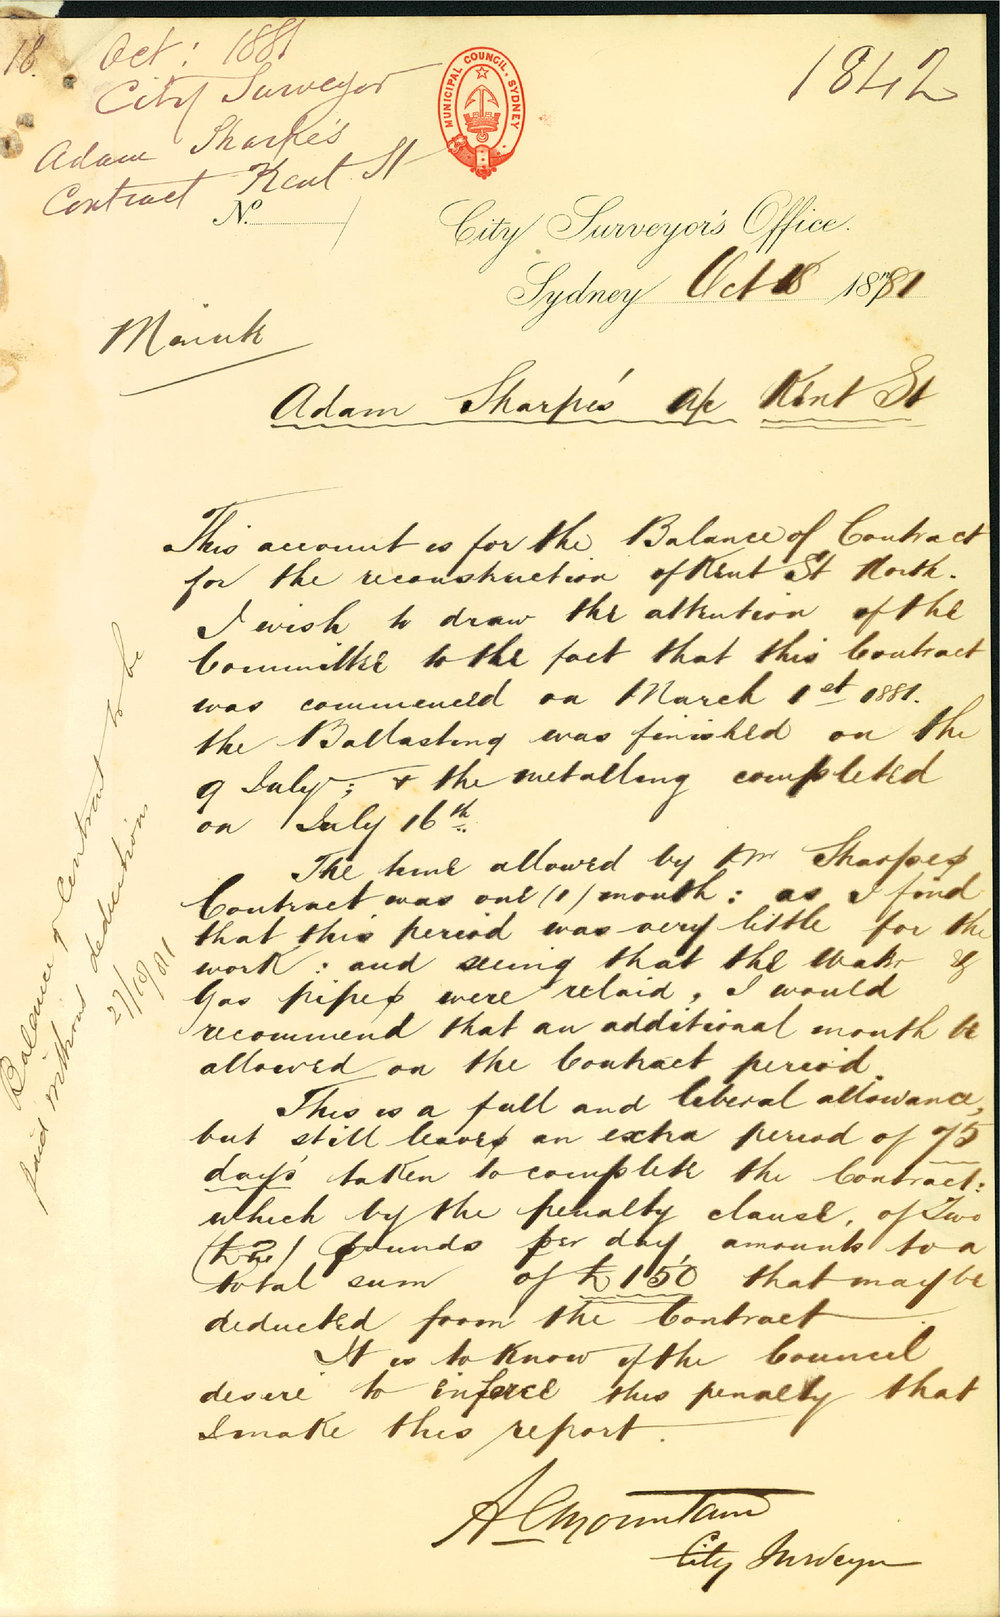 18. Oct: 1881
City Surveyor
Adam Sharpe's
Contract Kent St
MUNICIPAL COUNCIL. SYDNEY
1842
No.
City Surveyor's Office.
Sydney Oct 18 1881
Minute
Adam Sharpe's a/c Kent St
This account is for the Balance of Contract
for the reconstruction of Kent St North.
I wish to draw the attention of the
Committee to the fact that this Contract
was commenced on March 1st 1881.
the Ballasting was finished on the
9 July; & the metalling completed
on July 16th.
The time allowed by Mr Sharpes
Contract was one (1) month: as I find
that this period was very little for the
work: and seeing that the Water &
Gas pipes were relaid, I would
recommend that an additional month be
allowed on the Contract period.
This is a full and liberal allowance,
but still leaves an extra period of 75
days taken to complete the Contract:
which by the penalty clause, of Two
(£2) pounds per day, amounts to a
total sum of £150 that may be
deducted from the Contract
It is to know if the Council
desire to enforce this penalty that
I make this report.
A C Mountain
City Surveyor
Balance of Contract to be
paid without deductions
27/10/81